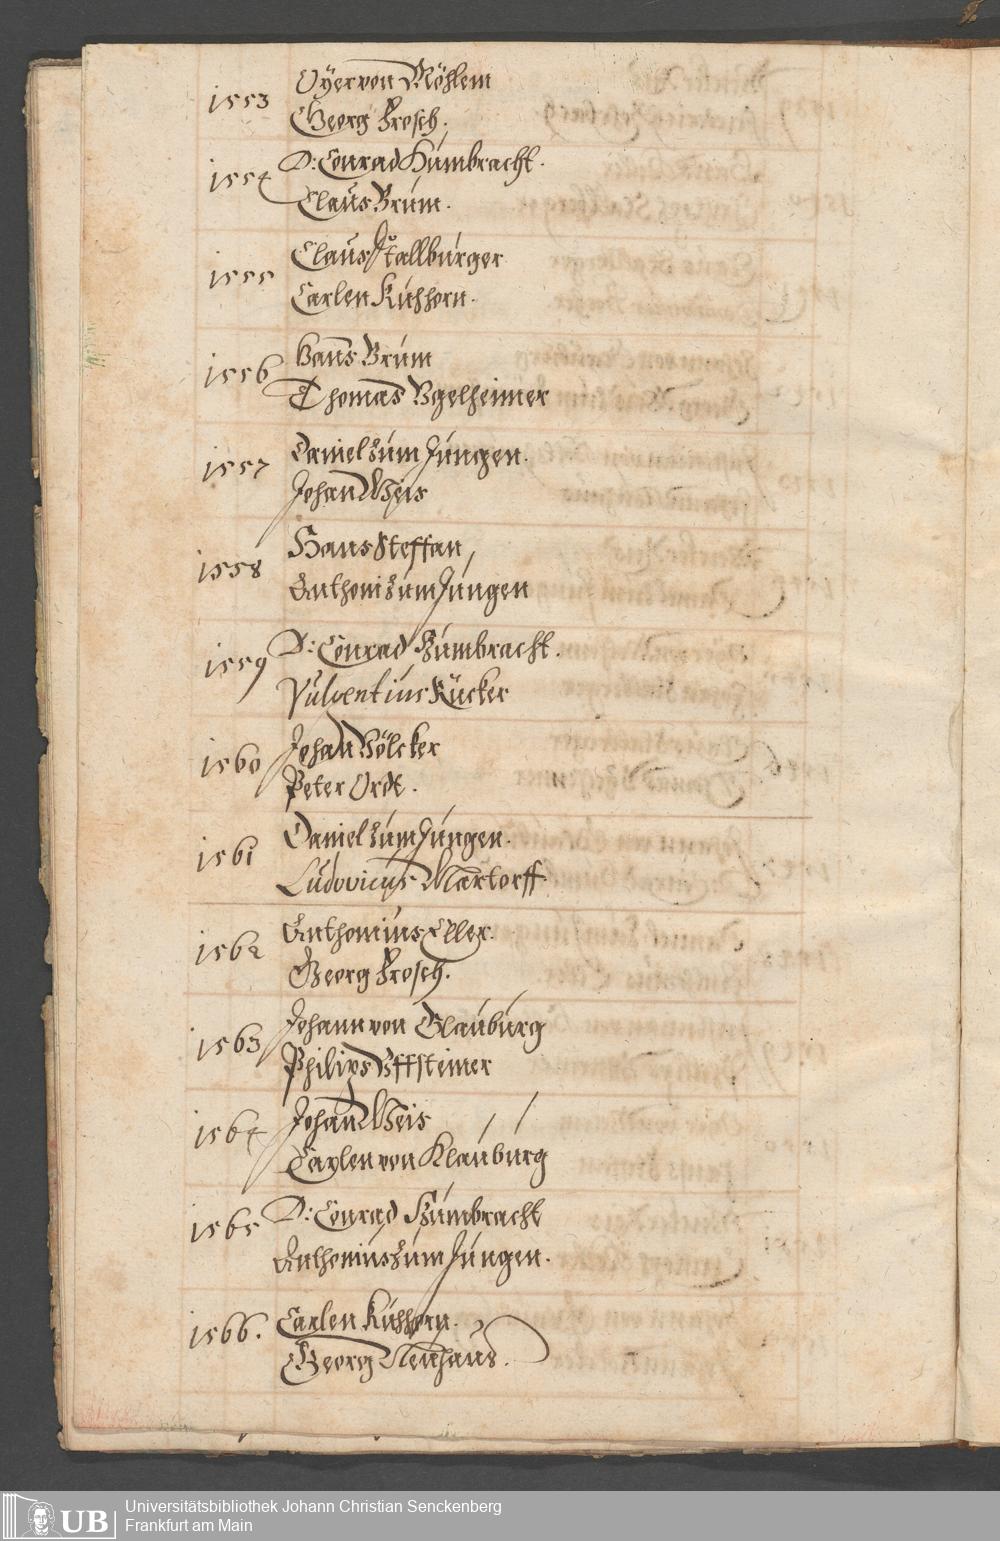 1553 Oyer von Möhlem
Georg Frosch.
1554 D: Conrad Humbracht.
Claus Brum.
1555 Claus Stallburger
Carlen Kühhorn.
1556 Hans Brum
Thomas Vgelheimer
1557 Daniel zum Jungen.
Johan Weis
1558 Hans Steffan
Anthoni zum Jungen
1559 D: Conrad Humbracht.
Fulgentius Rücker
1560 Johan Völcker
Peter Ordt.
1561 Daniel zum Jungen.
Ludovicus Martorff
1562 Anthonius Eller.
Georg Frosch.
1563 Johann von Glauburg
Philips Vffsteiner
1564 Johan Weis
Carlen von Klauburg
1565 D: Conrad Humbracht
Anthonius zum Jungen.
1566. Carlen Kühhorn.
Georg Neuhaus.
UB Universitätsbibliothek Johann Christian Senckenberg
Frankfurt am Main